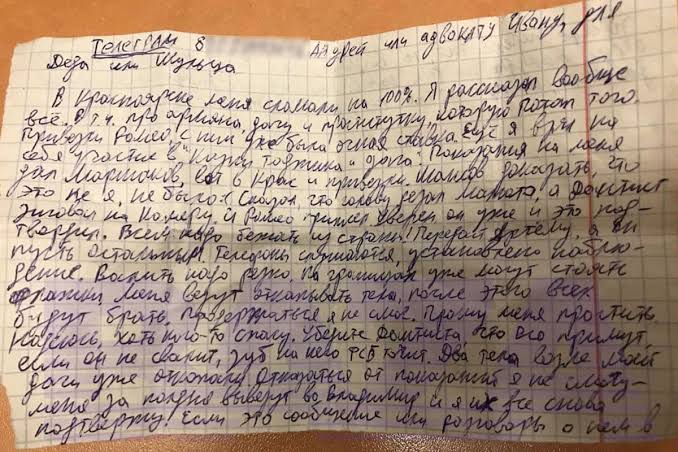 Телеграм 8 Андрей или адвокату Ивану, для
Деда или Шульца
В Красноярске меня сломали на 100%. Я рассказал вообще
всё. В т.ч. про армяна, дачу и проститутку, которую потом того.
Привезли Ромео с ним уже была очная ставка. Ещё я взял на
себя участие в "Казни таджика" и дага. Показания на меня
дал Марцинов, вот в Крас и привезли. Шансов доказать, что
это не я, не было. Сказал, что голову резал Мамота, а Дантист
зиговал на камеру. И Ромео уверен он уже и это под-
твердил. Всем надо бежать из страны! Передай а он
пусть остальным. Телефоны слушаются, установлено наблю-
дение. Валить надо резко, на границах уже могут стоять
Меня везут откапывать тела, после этого всех
будут брать. Продержаться я не смог. Прошу меня простить
Надеюсь, хоть кого-то спасу. Уберите Дантиста, что его примут
если он не свалит, зуб на него ФСБ точит. Два тела возле моей
дачи уже откопали. Отказаться от показаний я не смогу-
меня за полдня вывезут во Владимир и я их все снова
подтвержу. Если это сообщение или разговоры о нем в